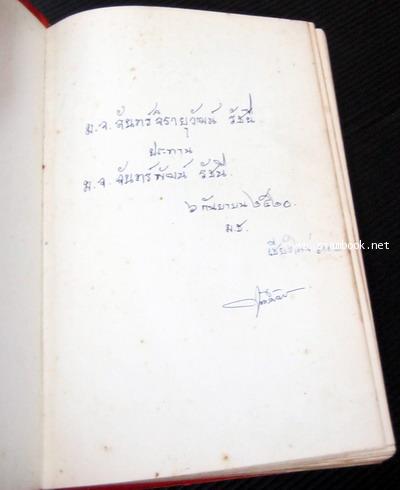 ม.จ. จันทร์จิรายุวัฒน์ รัชนี.
ประทาน
ม.จ. จันทร์พัฒน์ รัชนี.
๖ กันยายน ๒๕๒๐.
ม.ช.
เชียงใหม่